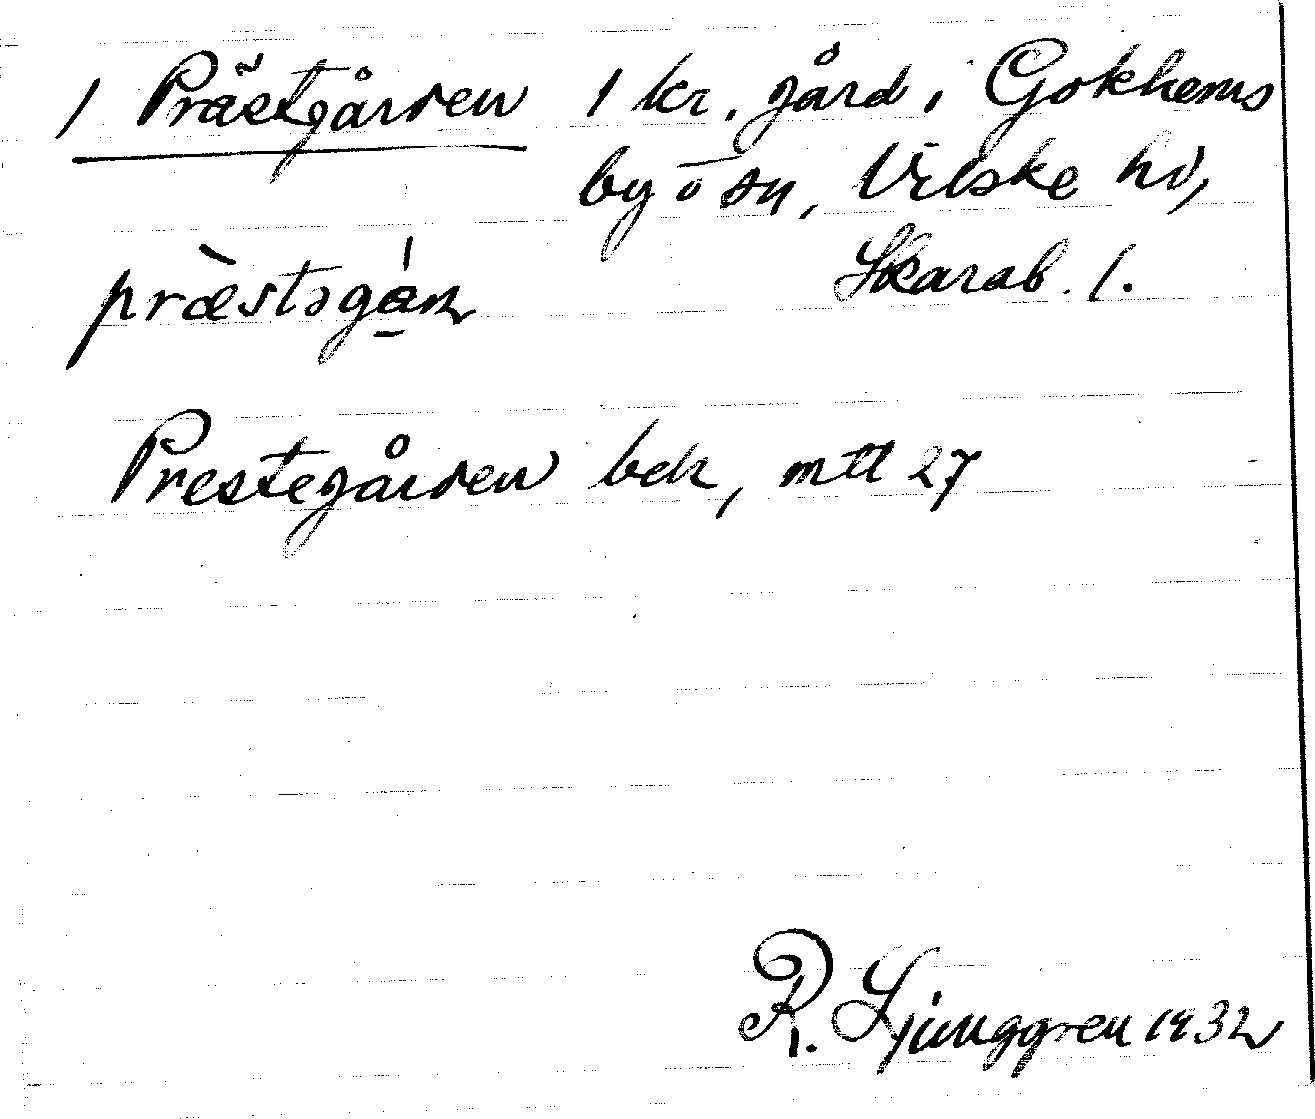 1 Prästgården 1 kr. gård i Gokhems
by o sn, Vilske hd,
præstəgán Skarab. l.
Prestegården bek, mtl 27
R. Ljunggren 1932